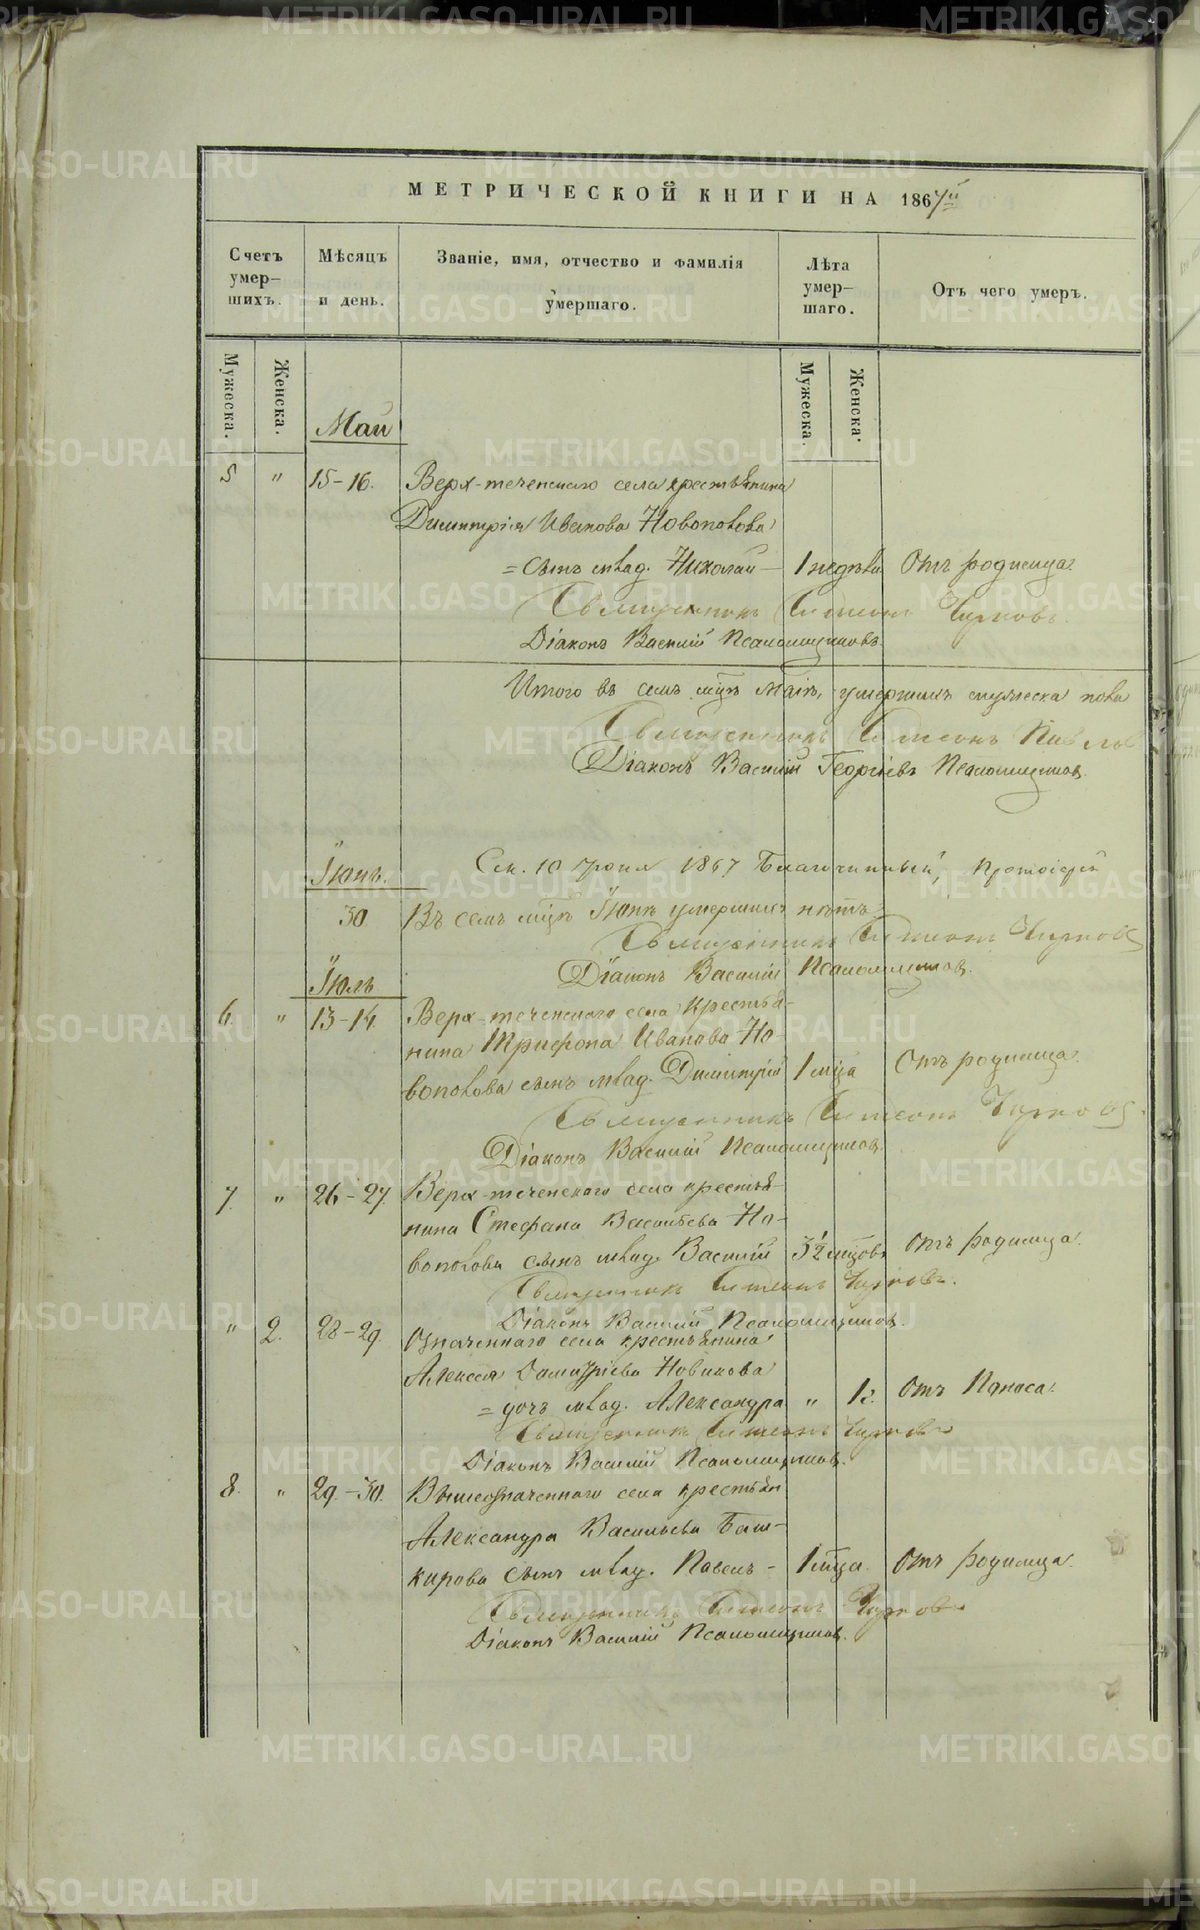 МЕТРИЧЕСКОЙ КНИГИ НА 1867й
Счетъ умер-шихъ.
Мѣсяцъ и день.
Званіе, имя, отчество и фамилія умершаго.
Лѣта умер-шаго.
Отъ чего умеръ.
Мужеска.
Женска.
Мужеска.
Женска.
Май
5 " 15-16. Верх-теченскаго села крестьянина
Димитрія Иванова Новопокова
= сынъ млад. Николай - 1 недѣли Отъ родимца.
Священникъ Симеонъ
Діаконъ Василій Псаломщиковъ
Итого въ семъ мцѣ Маіѣ, умершихъ мужеска пола
Священникъ Симеонъ
Діаконъ Василій Георгіевъ Псаломщиковъ
Іюнь.
10 Іюня 1867 Благочинный, Протоіерей
30. Въ семъ мцѣ Іюнѣ умершихъ нѣтъ.
Священникъ Симеонъ
Діаконъ Василій Псаломщиковъ.
Іюль
6. " 13-14. Верх-теченскаго села крестья-
нина Трифона Иванова Но-
вопокова сынъ млад. Димитрій 1 мѣца Отъ родимца.
Священникъ Симеонъ
Діаконъ Василій Псаломщиковъ.
7. " 26-27. Верх-теченскаго села крестья-
нина Стефана Васильева Но-
вопокова сынъ млад. Василій 3½ мѣцовъ Отъ родимца.
Священникъ Симеонъ
Діаконъ Василій Псаломщиковъ.
" 2. 28-29. Означеннаго села крестьянина
Алексея Димитріева Новикова
= дочь млад. Александра " 1 г. Отъ поноса.
Священникъ Симеонъ
Діаконъ Василій Псаломщиковъ.
8. " 29.-30. Вышеозначеннаго села крестьян
Александра Васильева Баш-
кирова сынъ млад. Павелъ - 1 мѣца. Отъ родимца.
Священникъ Симеонъ
Діаконъ Василій Псаломщиковъ.
METRIKI.GASO-URAL.RU